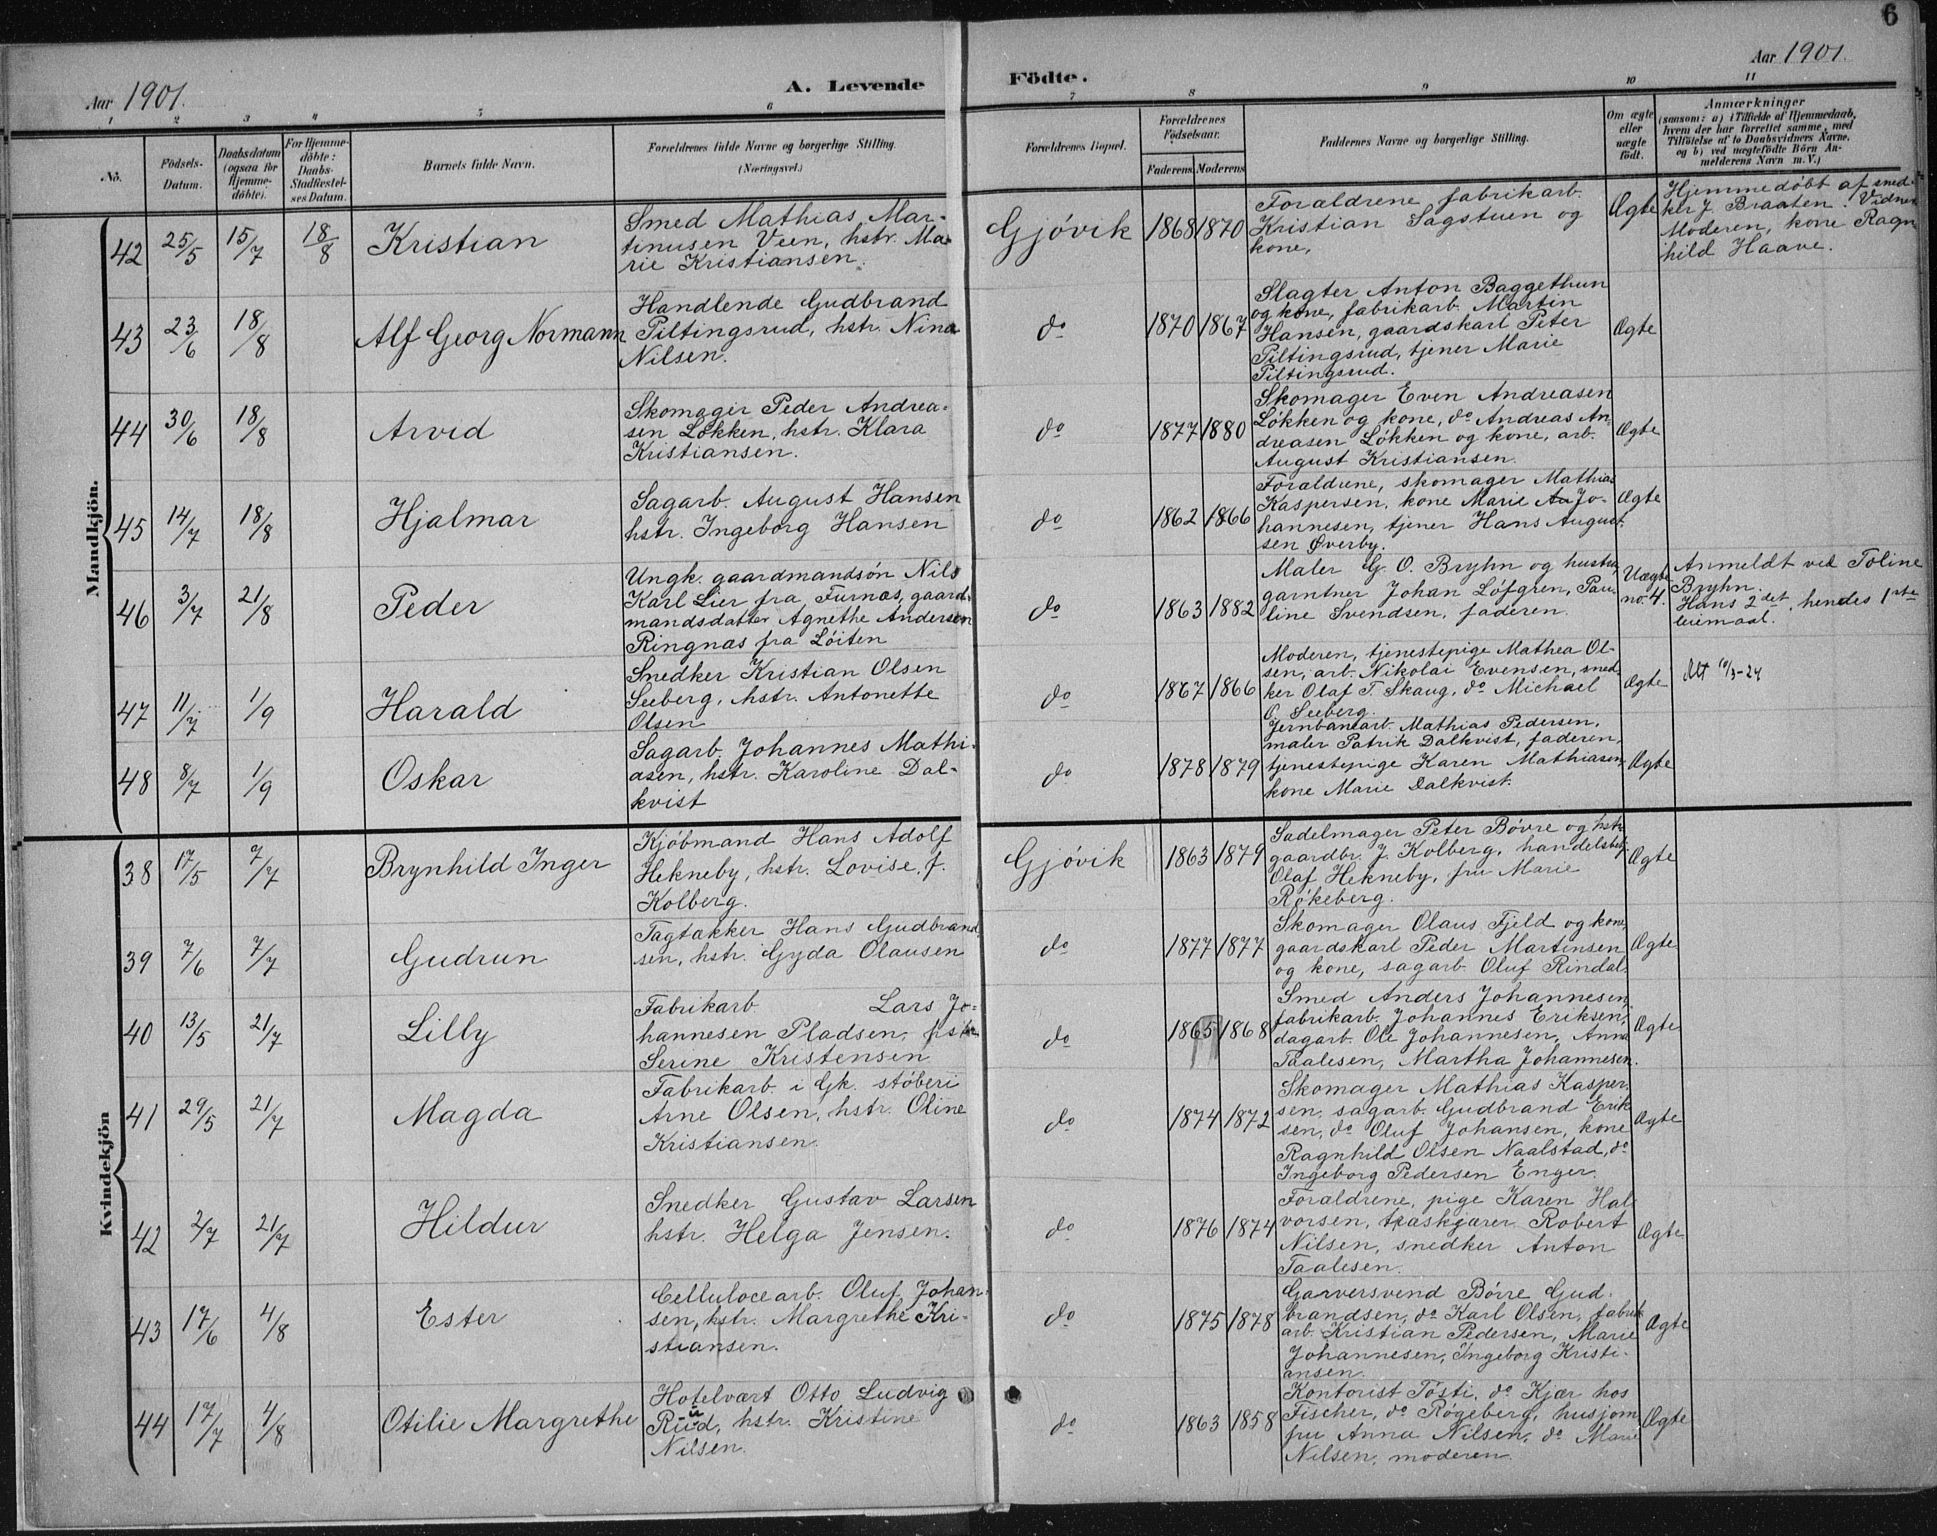 6
Aar 1901.
A. Levende Födte.
Aar 1901.
1 2 3 4 5 6 7 8 9 10 11
No.
Födsels-
Datum.
Daabsdatum
(ogsaa for
Hjemme-
döbte).
For Hjemme-
döbte:
Daabs-
Stadfæstel-
ses Datum.
Barnets fulde Navn.
Forældrenes fulde Navne og borgerlige Stilling.
(Næringsvei.)
Forældrenes Bopæl.
Forældrenes
Födselsaar.
Faderens Moderens
Faddernes Navne og borgerlige Stilling.
Om ægte
eller
uægte
födt.
Anmærkninger
(saasom: a) i Tilfælde af Hjemmedaab,
hvem der har forrettet samme, med
Tilföielse af to Daabsvidners Navne,
og b) ved uægtefödte Börn An-
melderens Navn m. V.)
Mandkjön.
42 25/5 15/7 18/8 Kristian
Smed Mathias Mar-
tinusen Veen, hstr. Ma-
rie Kristiansen.
Gjövik 1868 1870
Forældrene fabrikarb.
Kristian Sagstuen og
kone,
Ægte
Hjemmedöbt af sned-
ker J. Braaten. Vidner
Moderen, kone Ragn
hild Haave.
43 23/6 18/8 Alf Georg Normann
Handlende Gudbrand
Piltingsrud, hstr. Nina
Nilsen.
do 1870 1867
Slagter Anton Baggethun
og kone, fabrikarb. Martin
Hansen, gaardskarl Peter
Piltingsrud, tjener Marie
Piltingsrud.
Ægte
44 30/6 18/8 Arvid
Skomager Peder Andrea-
sen Løkken, hstr. Klara
Kristiansen.
do 1877 1880
Skomager Even Andreasen
Løkken og kone, do Andreas An
dreasen Løkken og kone, arb.
August Kristiansen.
Ægte
45 14/7 18/8 Hjalmar
Sagarb. August Hansen
hstr. Ingeborg Hansen
do 1862 1866
Forældrene, skomager Mathias
Kaspersen, kone Marie Jo-
hannesen, tjener Hans August-
sen Øverby.
Ægte
46 3/7 21/8 Peder
Ungk. gaardmandsøn Nils
Karl Lier fra Furnæs, gaard-
mandsdatter Agnethe Andersen
Ringnæs fra Løiten
do 1863 1882
Maler G. O. Bryhn og hustru
gartner Johan Løfgren, Pau-
line Svendsen, faderen.
Uægte
no. 4.
Anmeldt ved Toline
Bryhn.
Hans 2det, hendes 1ste
leiemaal.
47 11/7 1/9 Harald
Snedker Kristian Olsen
Seeberg, hstr. Antonette
Olsen
do 1867 1866
Moderen, tjenestepige Mathea Ol-
sen, arb. Nikolai Evensen, sned-
ker Olaf T Skaug, do Michael
O. Seeberg.
Ægte
10/3-24
48 8/7 1/9 Oskar
Sagarb. Johannes Mathi-
asen, hstr. Karoline Dal-
kvist
do 1878 1879
Jernbanearb. Mathias Pedersen,
maler Patrik Dalkvist, faderen,
tjenestepige Karen Mathiasen
kone Marie Dalkvist.
Ægte
Kvindekjön
38 17/5 7/7 Brynhild Inger
Kjøbmand Hans Adolf
Hekneby, hstr. Lovise, f.
Kolberg.
Gjøvik 1863 1879
Sadelmager Peter Bövre og hstr
gaardbr. J. Kolberg, handelsbetj
Olaf Hekneby, fru Marie
Røkeberg.
Ægte
39 7/6 7/7 Gudrun
Tagtækker Hans Gudbrand
sen, hstr. Gyda Olausen
do 1877 1877
Skomager Olaus Fjeld og kone
gaardskarl Peder Martinsen
og kone, sagarb. Oluf Rindal.
Ægte
40 13/5 21/7 Lilly
Fabrikarb. Lars Jo-
hannesen Pladsen, hstr
Serine Kristensen
do 1865 1868
Smed Anders Johannesen,
fabrikarb. Johannes Eriksen,
dagarb. Ole Johannesen, Anna
Taalesen, Martha Johannesen.
Ægte
41 29/5 21/7 Magda
Fabrikarb. i Gk. støberi
Arne Olsen, hstr. Oline
Kristiansen.
do 1874 1872
Skomager Mathias Kasper-
sen, sagarb. Gudbrand Erik
sen, do Oluf Johansen, kone
Ragnhild Olsen Naalstad, do
Ingeborg Pedersen Enger.
Ægte
42 2/7 21/7 Hildur
Snedker Gustav Larsen
hstr. Helga Jensen.
do 1876 1874
Forældrene, pige Karen Hal
vorsen, træskjærer Robert
Nilsen, snedker Anton
Taalesen.
Ægte
43 17/6 4/8 Ester
Cellulocearb. Oluf Johan-
sen, hstr. Margrethe Kri-
stiansen.
do 1875 1878
Garversvend Börre Gud-
brandsen, do Karl Olsen, fabrik
arb. Kristian Pedersen, Marie
Johannesen, Ingeborg Kristi-
ansen
Ægte
44 17/7 4/8 Otilie Margrethe
Hotelvært Otto Ludvig
Ruud, hstr. Kristine
Nilsen.
do 1863 1858
Kontorist Tösti, do Kjær hos
Fischer, do Røgeberg, husjom
fru Anna Nilsen, do Marie
Nilsen, moderen.
Ægte